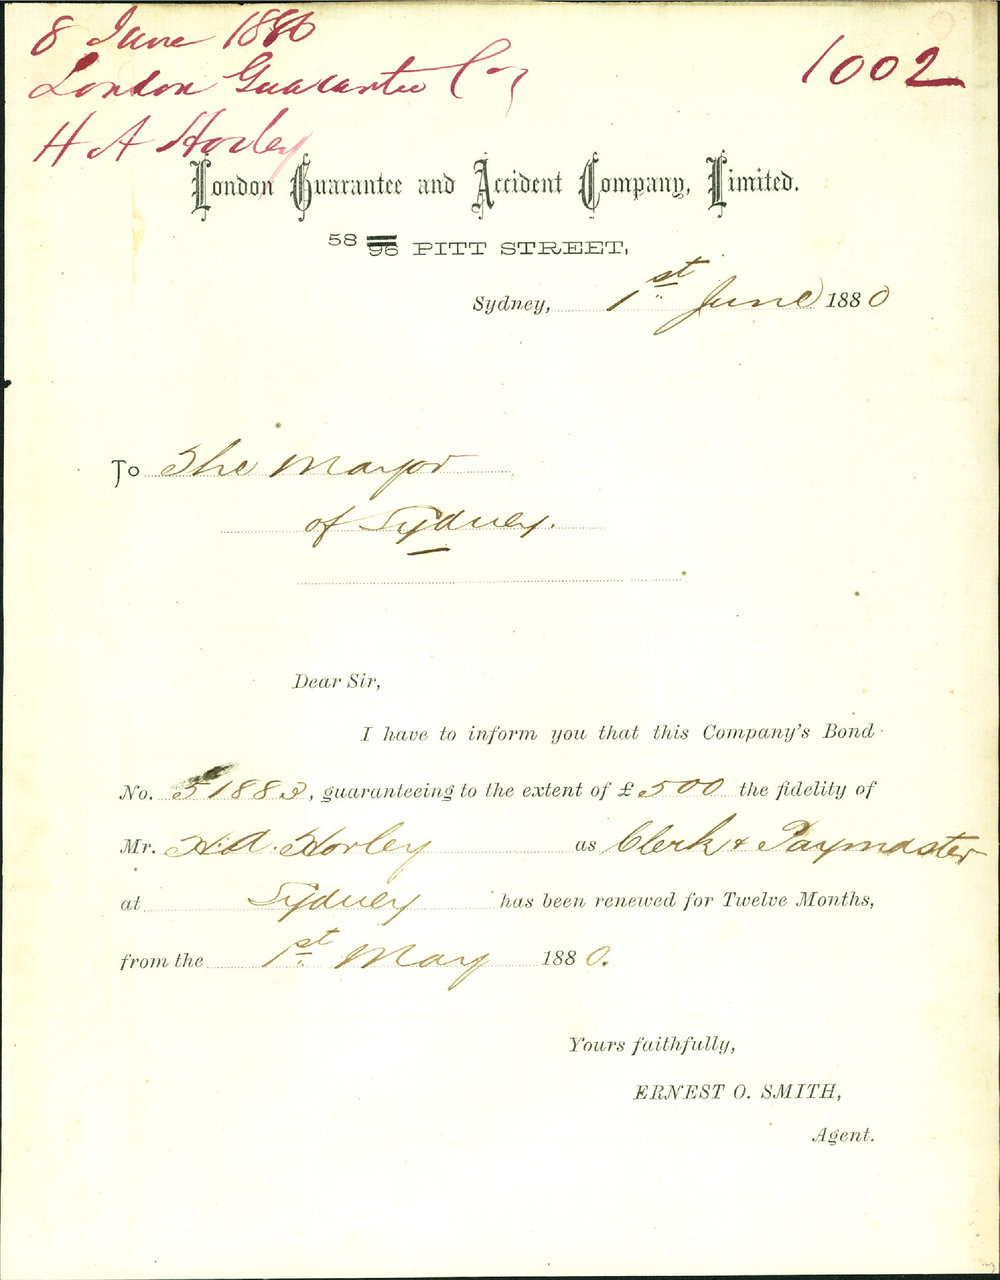 8 June 1880
London Guarantee Coy
H A Horley
1002
London Guarantee and Accident Company, Limited.
58 96 PITT STREET,
Sydney, 1st June 1880
To The Mayor
of Sydney.
Dear Sir,
I have to inform you that this Company's Bond
No. 51882, guaranteeing to the extent of £500 the fidelity of
Mr. H.A. Horley as Clerk & Paymaster
at Sydney has been renewed for Twelve Months,
from the 1st May 1880.
Yours faithfully,
ERNEST O. SMITH,
Agent.